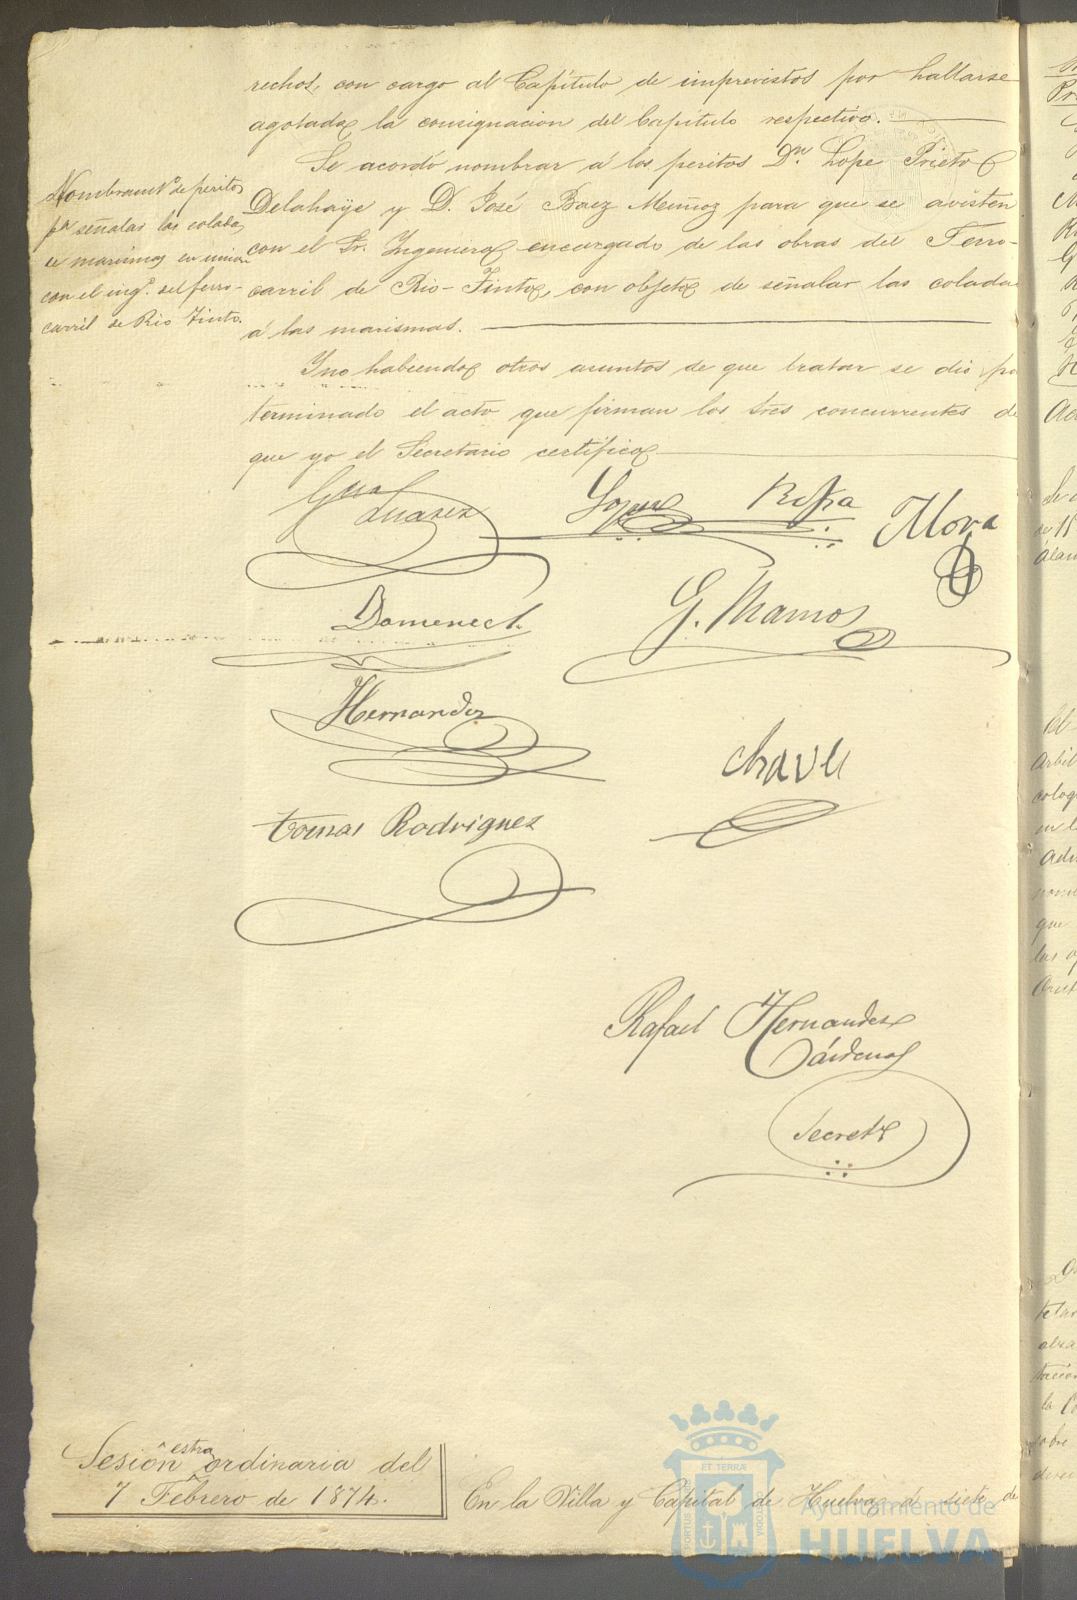 rechos, con cargo al Capítulo de imprevistos por hallarse
agotada la consignacion del Capítulo respectivo.
Se acordó nombrar á los peritos Dn. Lope Prieto
Delahaye y D. José Baez Meñoz para que se avisten
con el Sr. Ingeniero encargado de las obras del Ferro-
carril de Rio-Tinto, con objeto de señalar las coladas
á las marismas.
Nombramto. de peritos
pa. señalar las coladas
de marismas en union
con el ingo. del ferro-
carril de Rio Tinto.
Y no habiendo otros asuntos de que tratar se dió po
terminado el acto que firman los tres concurrentes de
que yo el Secretario certifico
Suarez Lopez Rioja Mora
Domenech G. Ramos
Hernandez
Chaves
Tomas Rodriguez
Rafael Hernandez
Cárdenas
Secreto
Sesión estraordinaria del
7 Febrero de 1874.
En la Villa y Capital de Huelva á siete de
Ayuntamiento de
HUELVA
PORTUS MARIS ET TERRÆ CUSTODIA